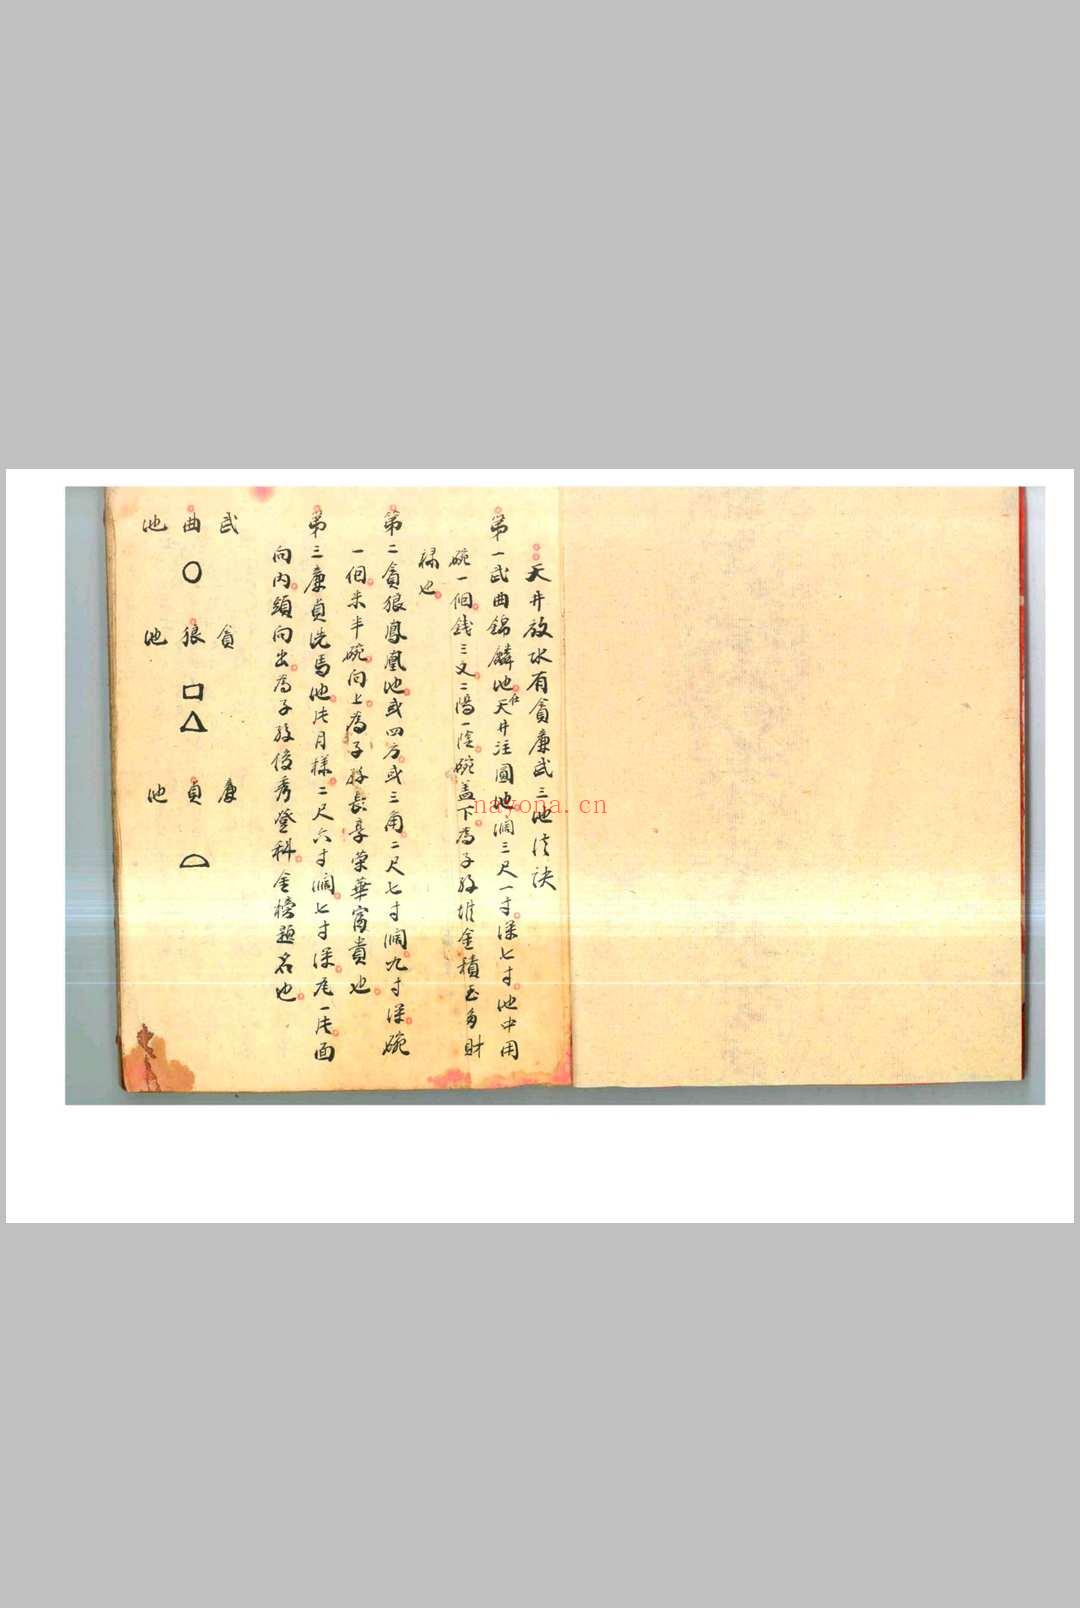 天井放水有貪廉武三池法訣
第一武曲錦鱗池在天井注圓池濶三尺一寸深七寸池中用
碗一個錢三文二陽一陰碗盖下為子孫堆金積玉多財
祿也
第二貪狼鳳凰池或四方或三角二尺七寸濶九寸深碗
一個米半碗向上為子孫長享榮華富貴也
第三廉貞洗馬池月樣二尺六寸濶七寸深尾一面
向內頭向出為子孫俊秀登科金榜題名也
武曲池
貪狼池
廉貞池
nayona.cn